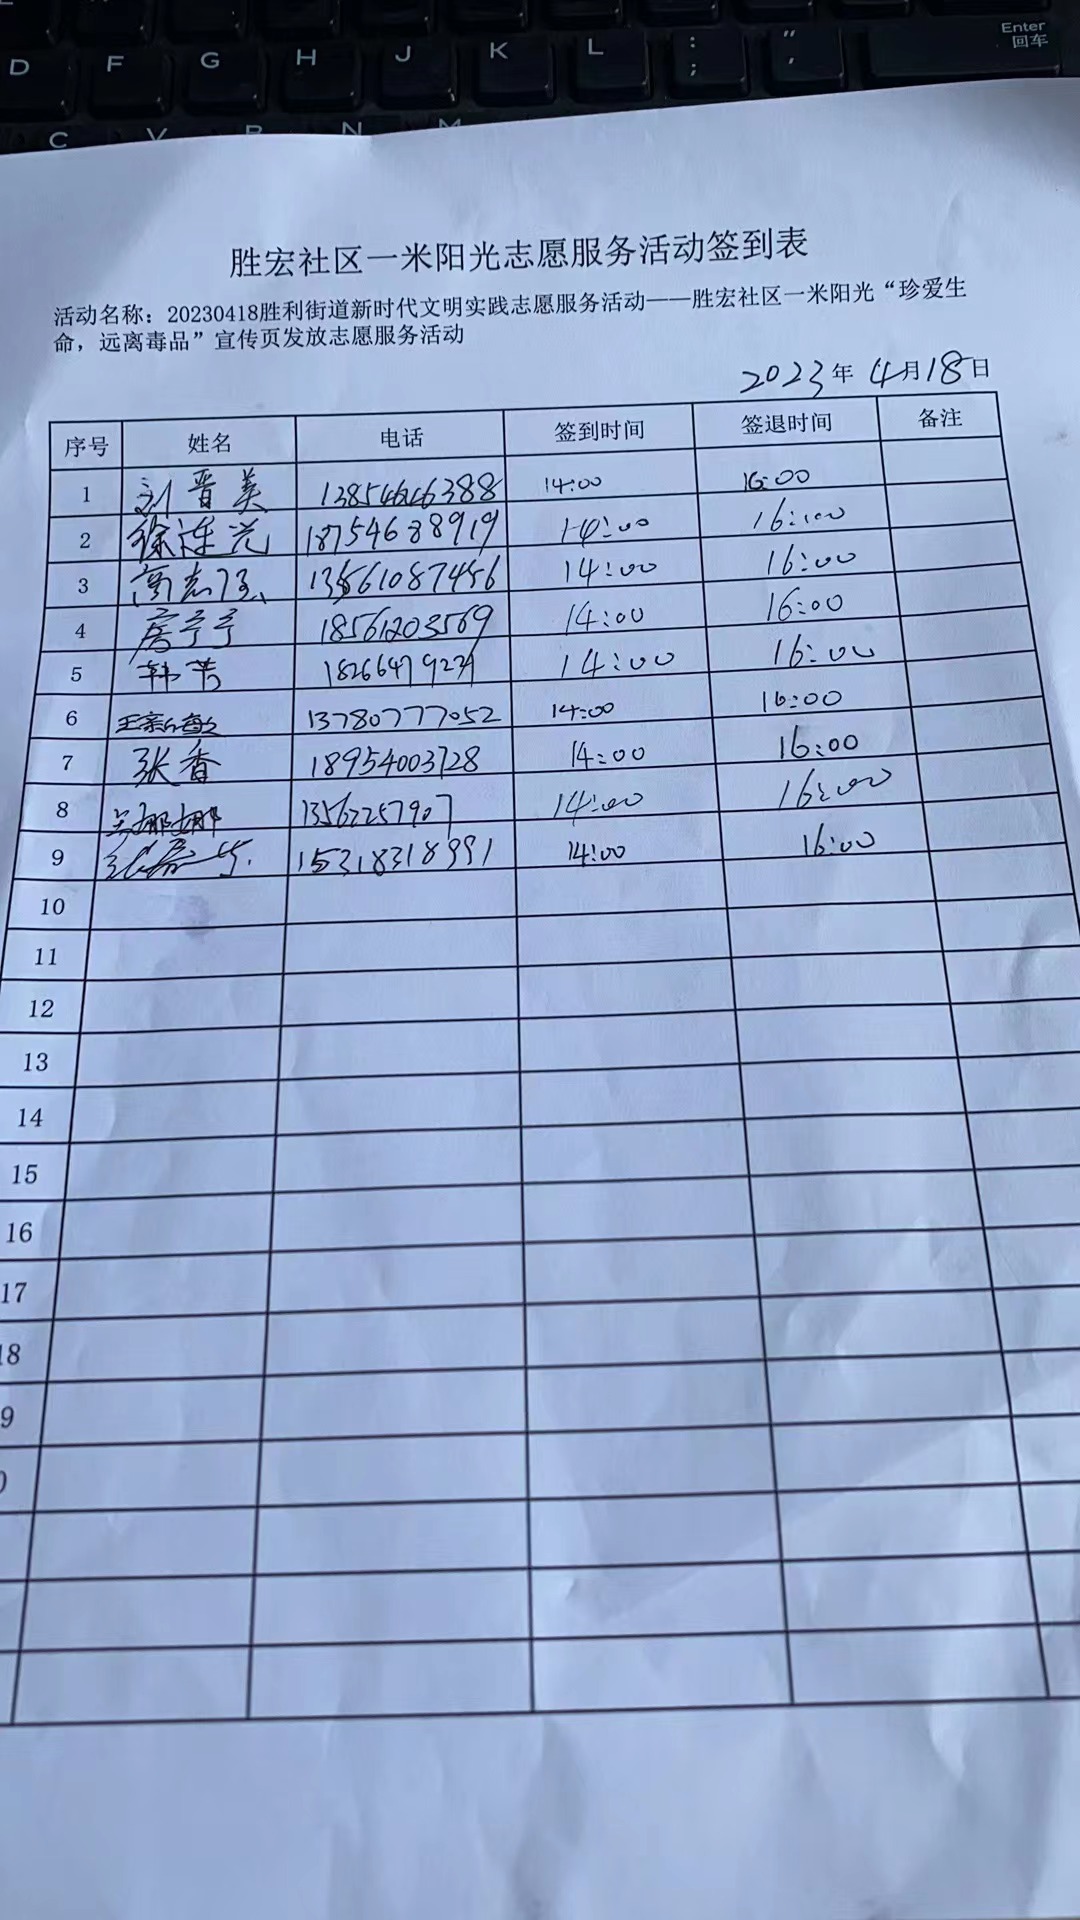 D F G H J K L : ; " ' Enter 回车
C V B N M
胜宏社区一米阳光志愿服务活动签到表
活动名称：20230418胜利街道新时代文明实践志愿服务活动——胜宏社区一米阳光“珍爱生
命，远离毒品”宣传页发放志愿服务活动
2023年 4月18日
序号 姓名 电话 签到时间 签退时间 备注
1 刘晋美 13854646388 14:00 16:00
2 徐连光 18754638919 14:00 16:00
3 高志 13561087456 14:00 16:00
4 房宁宁 18561203569 14:00 16:00
5 韩芳 14:00 16:00
6 13780777052 14:00 16:00
7 张香 18954003728 14:00 16:00
8 娜娜 13562257907 14:00 16:00
9 15318318991 14:00 16:00
10
11
12
13
14
15
16
17
18
9
0